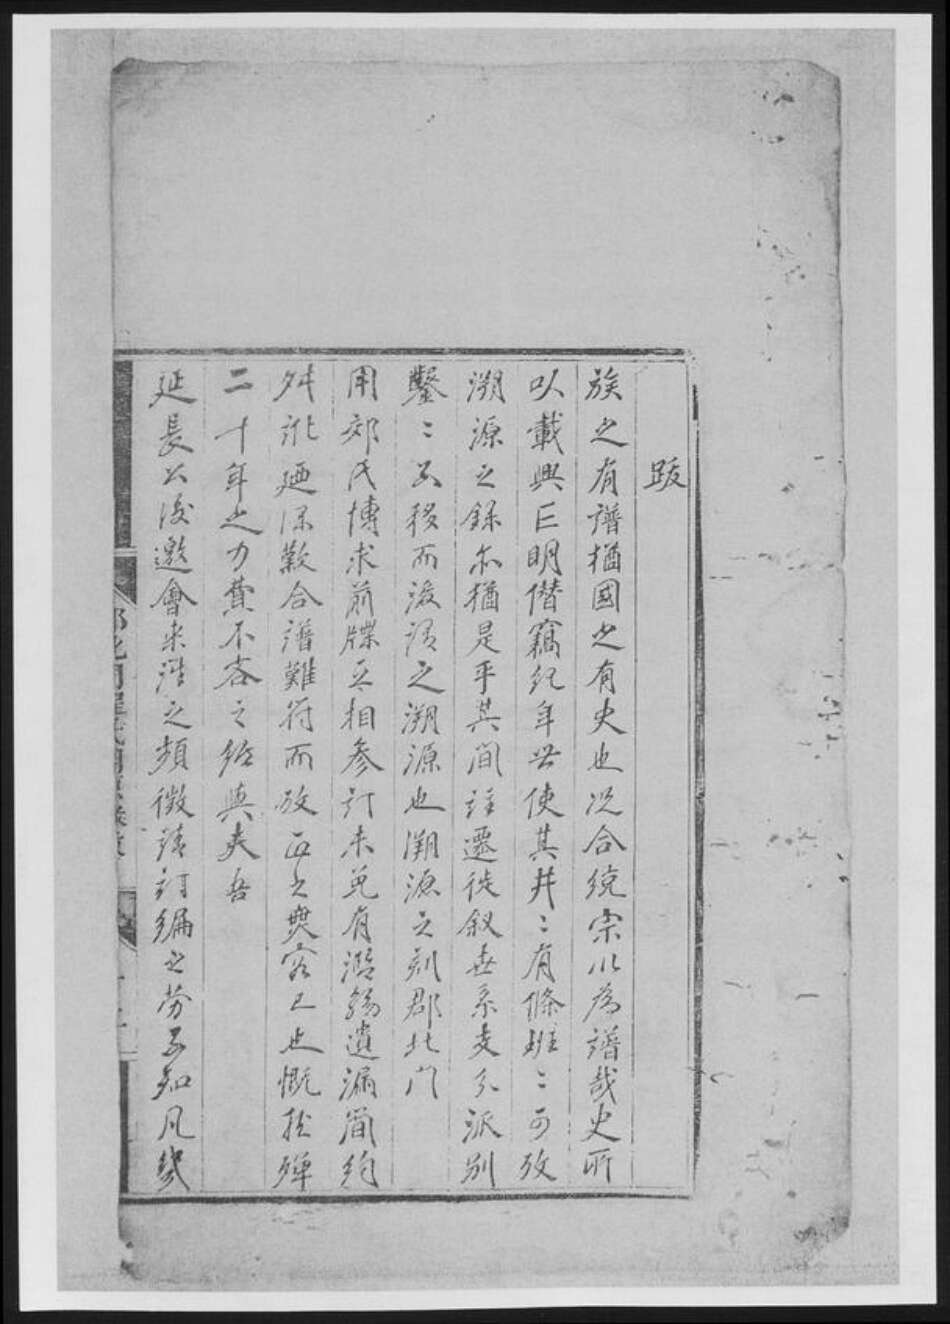 跋
族之有譜猶國之有史也況合統宗以為譜哉史所
以載興亡明僭竊紀年世使其井〻有條班〻可攷
溯源之錄亦猶是乎其間註遷徙叙世系支分派別
鑿〻不移而後謂之溯源也溯源之刻郡北門
用郊氏博求前牒互相參訂未免有濫觴遺漏簡約
舛訛廼深歎合譜難符而攷正之與容已也慨然殫
二十年之力費不吝之給與夫吾
延長公後邀會來往之頻徵請訂編之勞不知凡幾